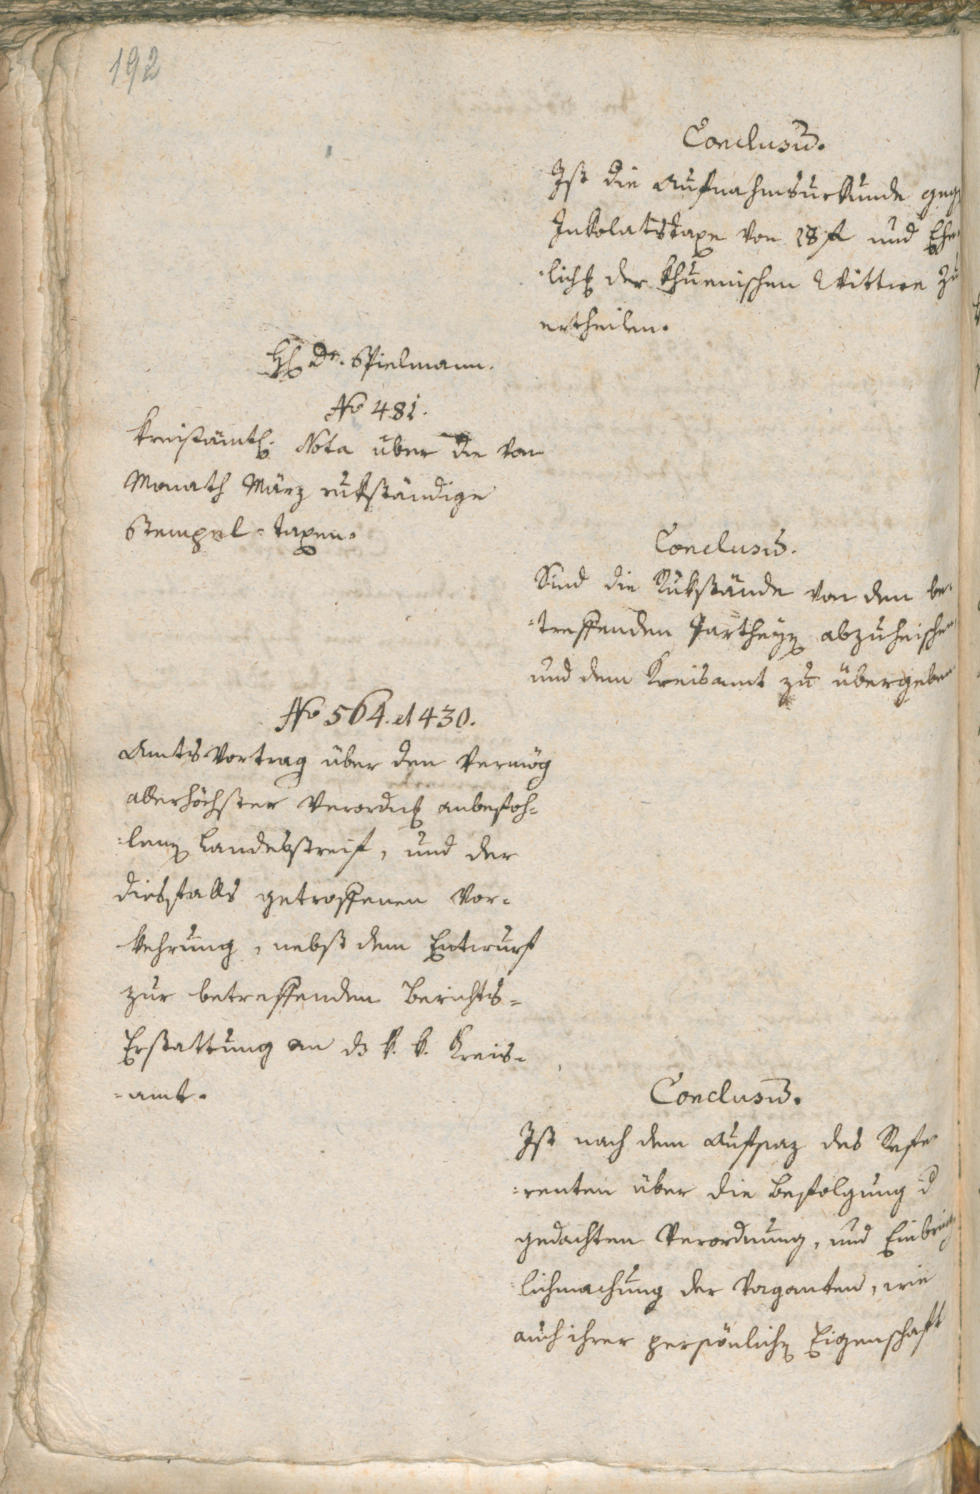 192
Conclusum.
Ist die Aufnahmsurkunde geg
Inkolatstaxe von 28 f und Ehe¬
licht der Khuenischen Wittwe zu
ertheilen.
H Dr. Spielmann.
No 481.
Kreisämtl. Nota über die von
Monath März rukständige
Stempel-taxen.
Conclusum.
Sind die Rükstände von den be¬
treffenden Partheyen abzuheischen
und dem Kreisamt zu übergeben
No 564. et 430.
Amtsvortrag über den vermög
allerhöchster Verordng anbefoh-
lenen Landesstreif, und der
diesfalls getroffenen Vor-
kehrung, nebst dem Entwurf
zur betreffenden Berichts-
Erstattung an ds k. k. Kreis-
amt.
Conclusum.
Ist nach dem Aufsaz des Refe
renten über die Befolgung d
gedachten Verordnung, und Einbring
lichmachung der Vaganten, wie
auch ihrer persönlichen Eigenschaft